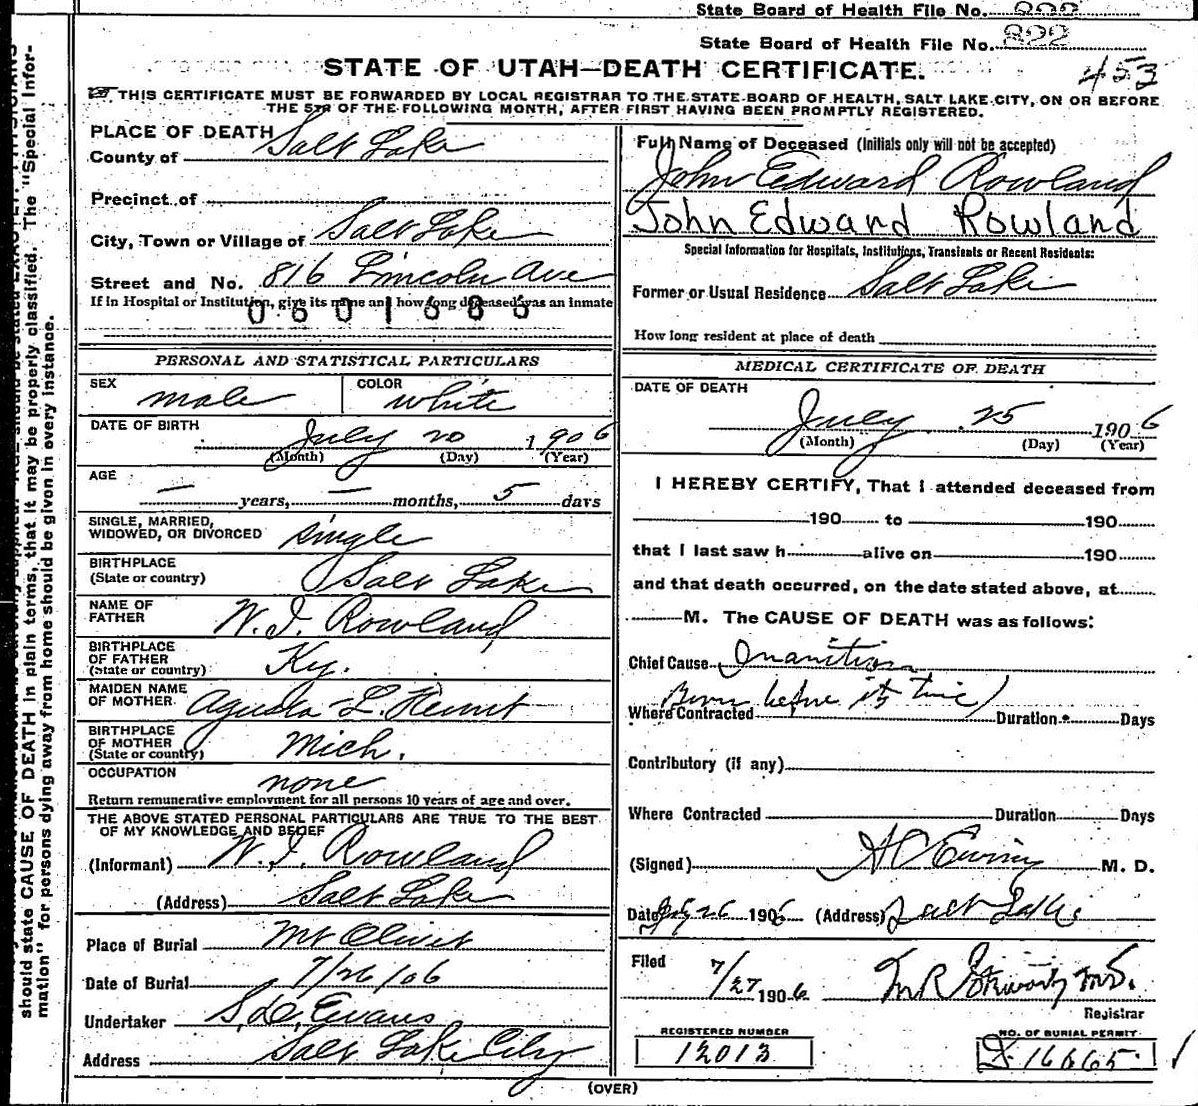 State Board of Health File No.
State Board of Health File No. 822
453
STATE OF UTAH—DEATH CERTIFICATE.
THIS CERTIFICATE MUST BE FORWARDED BY LOCAL REGISTRAR TO THE STATE BOARD OF HEALTH, SALT LAKE CITY, ON OR BEFORE
THE 5TH OF THE FOLLOWING MONTH, AFTER FIRST HAVING BEEN PROMPTLY REGISTERED.
should state CAUSE OF DEATH in plain terms, that it may be properly classified. The "Special Infor-
mation" for persons dying away from home should be given in every instance.
PLACE OF DEATH
County of Salt Lake
Precinct of
City, Town or Village of Salt Lake
Street and No. 816 Lincoln Ave
If in Hospital or Institution, give its name and how long deceased was an inmate
0601685
PERSONAL AND STATISTICAL PARTICULARS
SEX male COLOR white
DATE OF BIRTH July 20 1906
(Month) (Day) (Year)
AGE
— years, — months, 5 days
SINGLE, MARRIED,
WIDOWED, OR DIVORCED single
BIRTHPLACE
(State or country) Salt Lake
NAME OF
FATHER W. J. Rowland
BIRTHPLACE
OF FATHER Ky.
(State or country)
MAIDEN NAME
OF MOTHER L.
BIRTHPLACE
OF MOTHER Mich.
(State or country)
OCCUPATION none
Return remunerative employment for all persons 10 years of age and over.
THE ABOVE STATED PERSONAL PARTICULARS ARE TRUE TO THE BEST
OF MY KNOWLEDGE AND BELIEF
(Informant) W. J. Rowland
(Address) Salt Lake
Place of Burial Mt Olivet
Date of Burial 7/26/06
Undertaker Evans
Address Salt Lake City
Full Name of Deceased (Initials only will not be accepted)
John Edward Rowland
John Edward Rowland
Special Information for Hospitals, Institutions, Transients or Recent Residents:
Former or Usual Residence Salt Lake
How long resident at place of death
MEDICAL CERTIFICATE OF DEATH
DATE OF DEATH
July 25 1906
(Month) (Day) (Year)
I HEREBY CERTIFY, That I attended deceased from
190 to 190
that I last saw h alive on 190
and that death occurred, on the date stated above, at
M. The CAUSE OF DEATH was as follows:
Chief Cause Inanition
Born before its time)
Where Contracted Duration Days
Contributory (if any)
Where Contracted Duration Days
(Signed) H C Ewing M. D.
Date July 26 1906 (Address) Salt Lake
Filed
7/27 1906 M R Stewart M.D.
Registrar
REGISTERED NUMBER
12013
NO. OF BURIAL PERMIT
D-16665
(OVER)